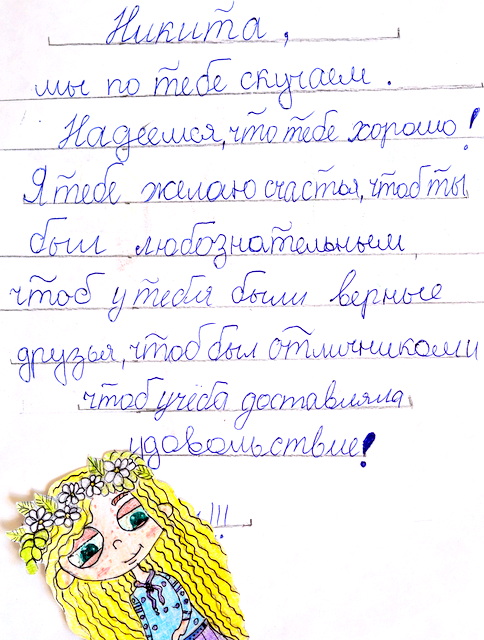 Никита,
мы по тебе скучаем.
Надеемся, что тебе хорошо!
Я тебе желаю счастья, чтоб ты
был любознательным,
чтоб у тебя были верные
друзья, чтоб был отличником и
чтоб учёба доставляла
удовольствие!
!!!